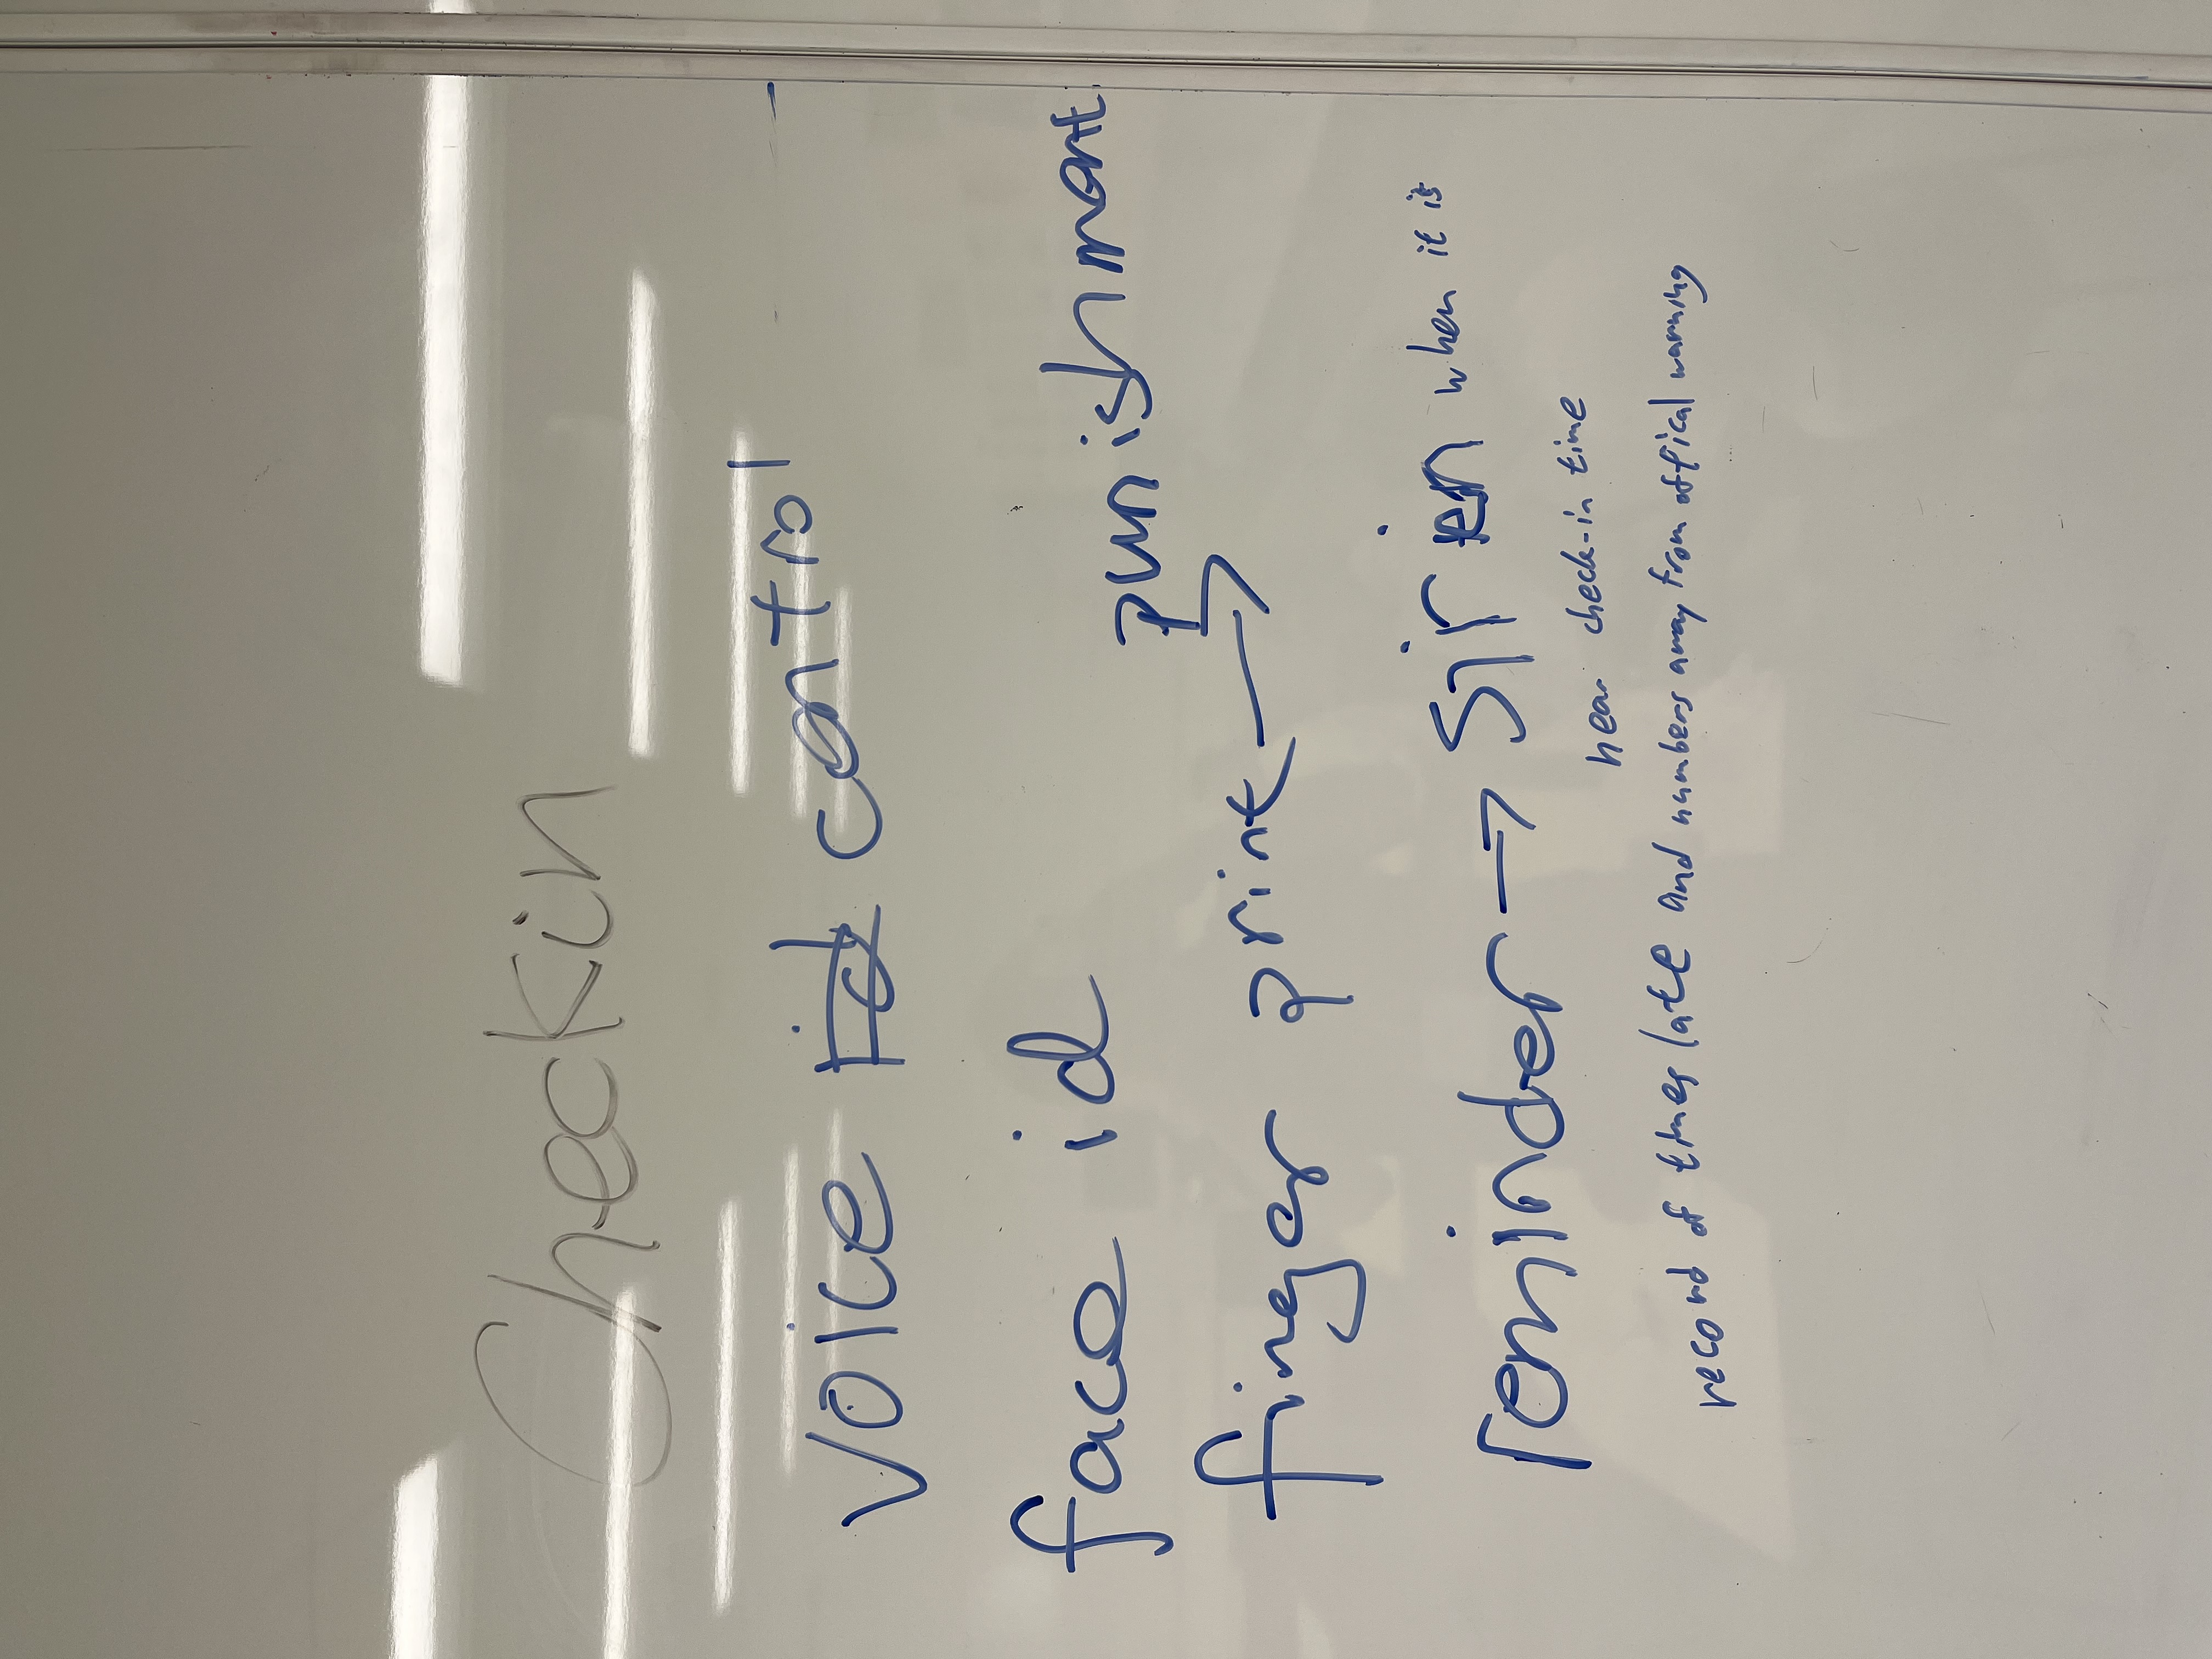 Checkin
voice id control
face id
punishment
finger print →
reminder → Siren when it is
near check-in time
record of times late and numbers away from offical warning